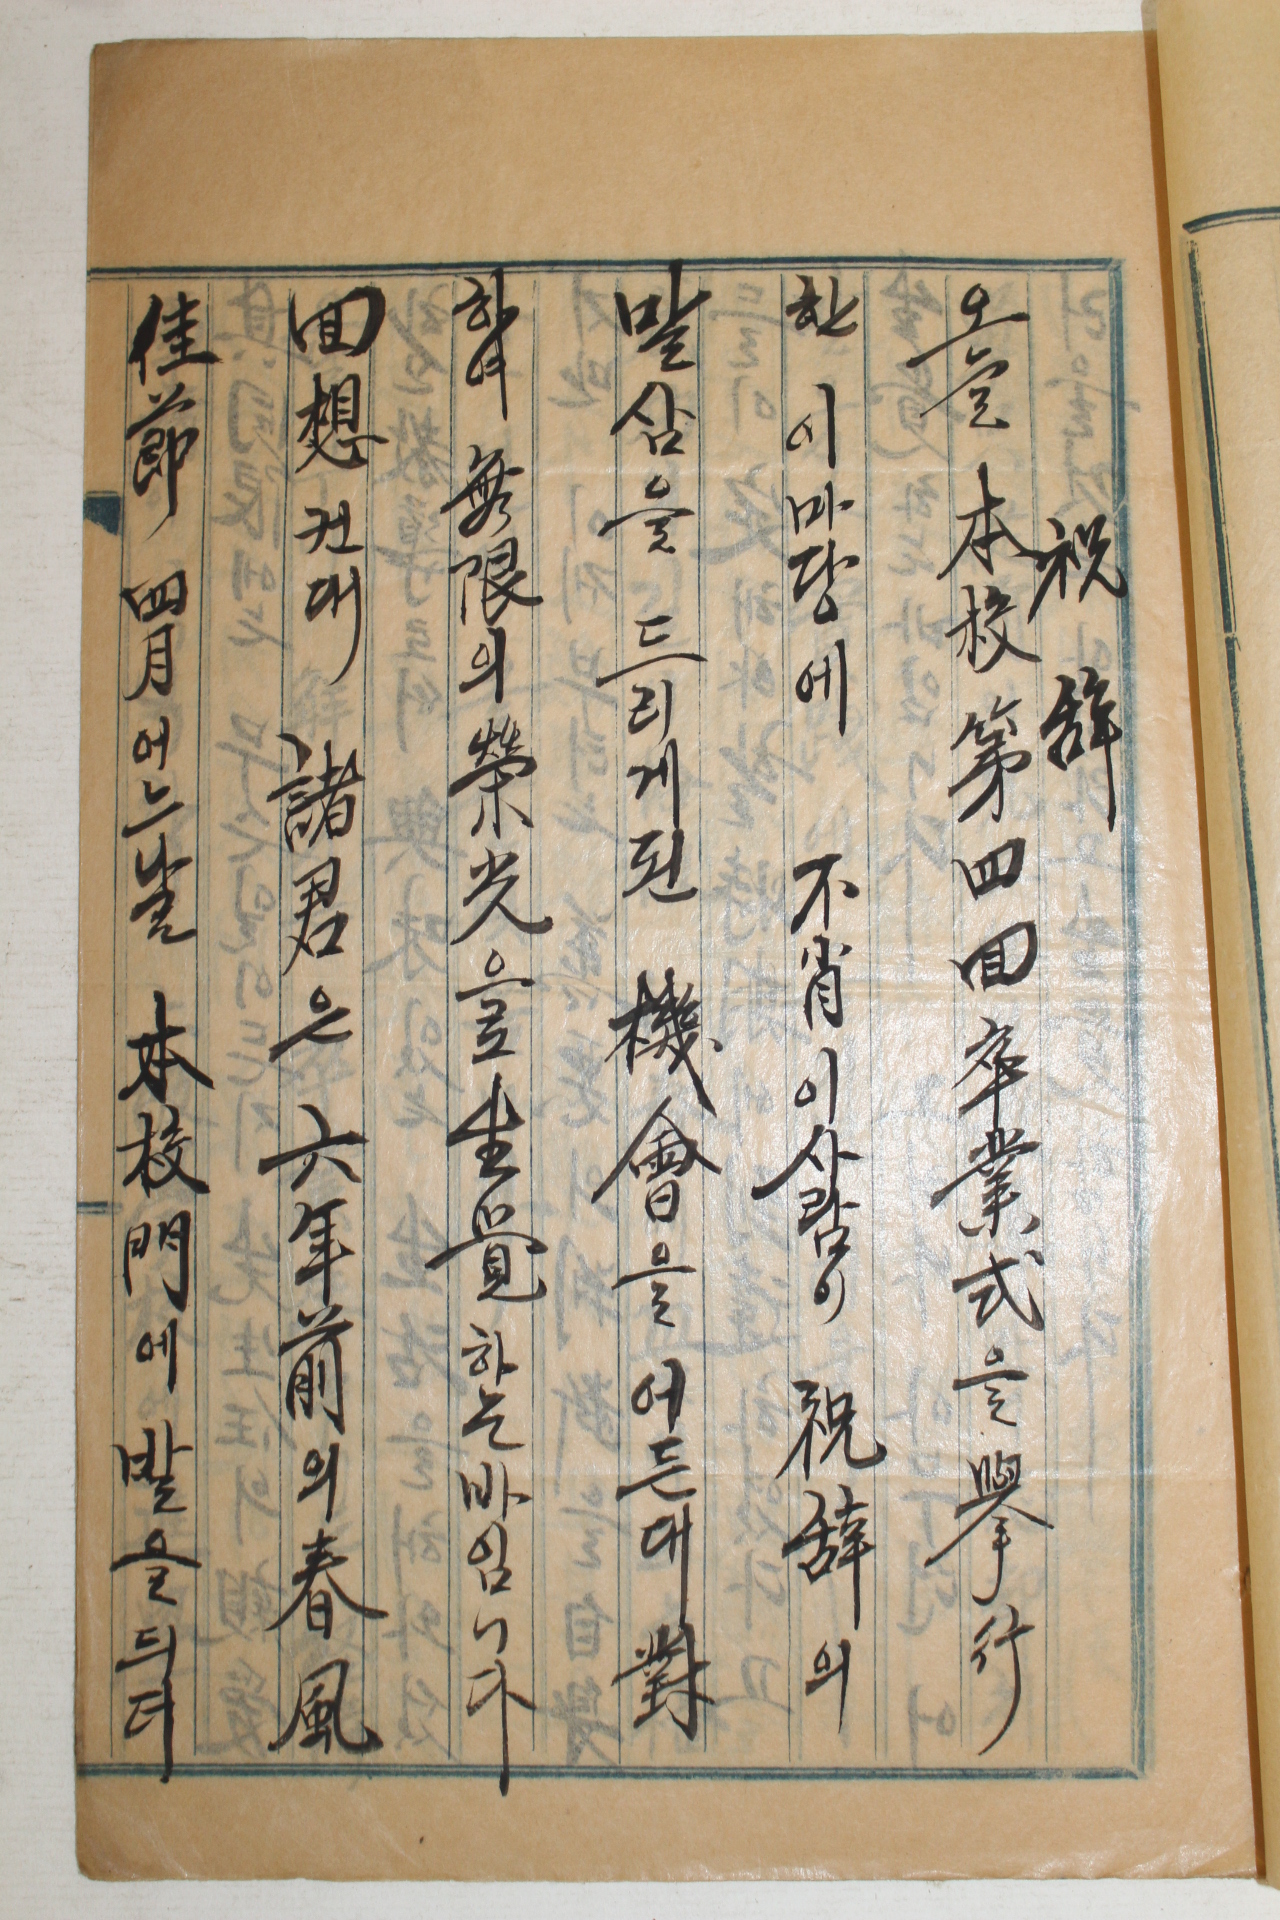 祝辞
오늘 本校 第四回 卒業式을 擧行
한 이마당에 不肖 이사람이 祝辞의
말삼을 드리게된 機會을 어든대 對
하여 無限의 榮光으로 生覺하는바임니다
回想컨대 諸君은 六年前의 春風
佳節 四月 어느날 本校門에 발을 듸더